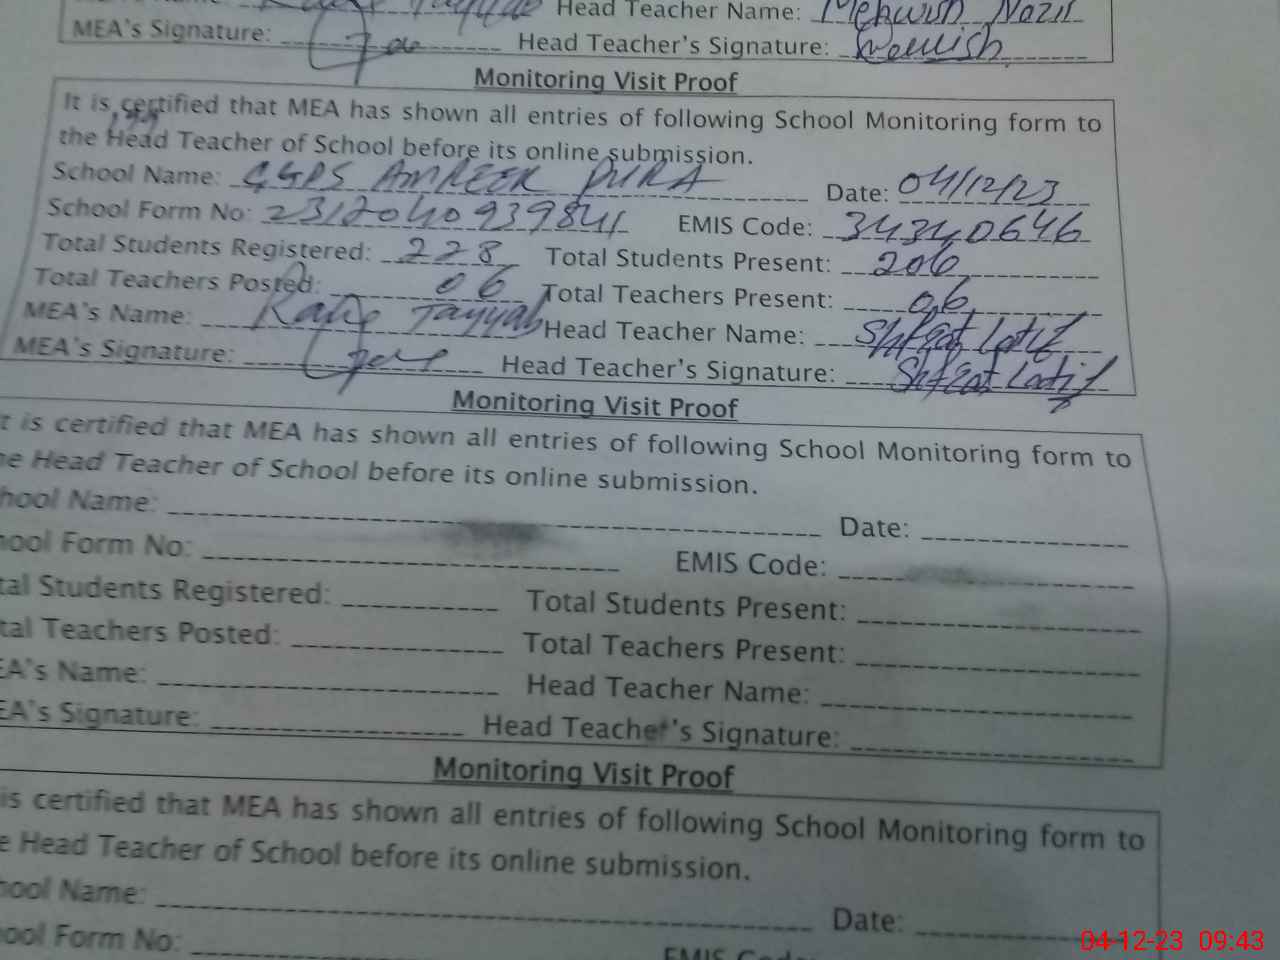 Head Teacher Name: Mehwish Nazir
MEA's Signature: Head Teacher's Signature: Mehwish
Monitoring Visit Proof
It is certified that MEA has shown all entries of following School Monitoring form to
the Head Teacher of School before its online submission.
School Name: GGPS AMREEK PURA Date: 04/12/23
School Form No: 231204093984 EMIS Code: 34340646
Total Students Registered: 228 Total Students Present: 206
Total Teachers Posted: 06 Total Teachers Present: 06
MEA's Name: Tayyab Head Teacher Name: Shfqat Latif
MEA's Signature: Head Teacher's Signature: Shfqat Latif
Monitoring Visit Proof
t is certified that MEA has shown all entries of following School Monitoring form to
he Head Teacher of School before its online submission.
hool Name: Date:
hool Form No: EMIS Code:
tal Students Registered: Total Students Present:
tal Teachers Posted: Total Teachers Present:
EA's Name: Head Teacher Name:
EA's Signature: Head Teacher's Signature:
Monitoring Visit Proof
is certified that MEA has shown all entries of following School Monitoring form to
e Head Teacher of School before its online submission.
hool Name: Date:
ool Form No: EMIS Code:
04-12-23 09:43